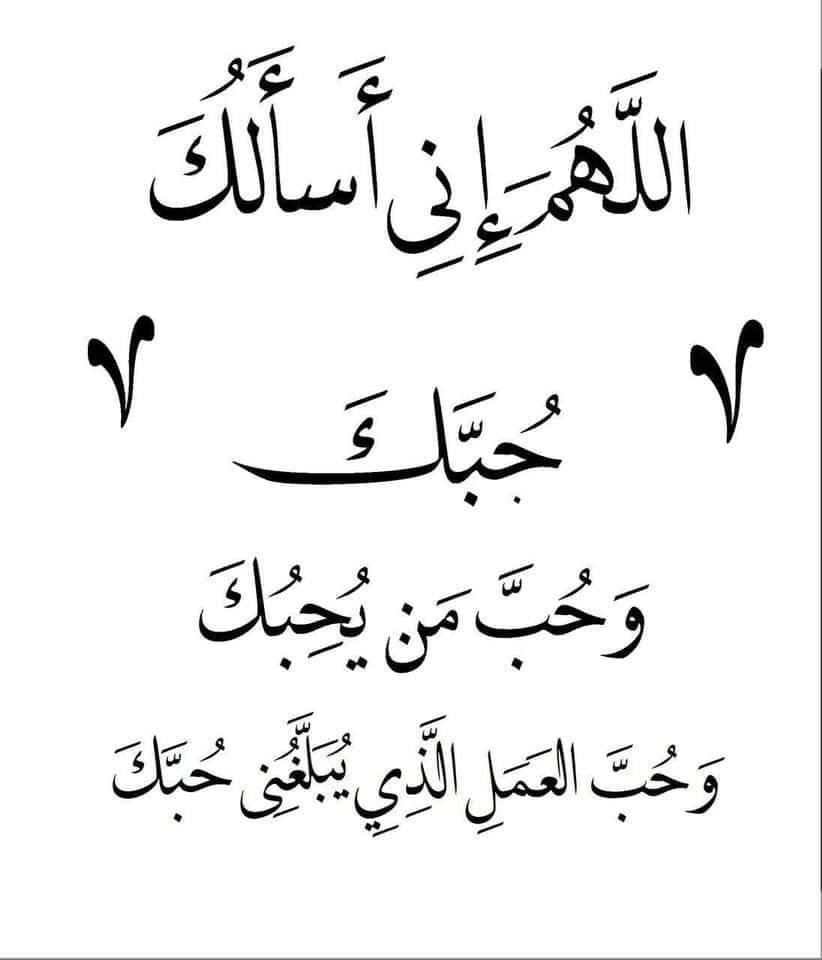 اللَّهُمَ إِنِي أَسأَلُكَ
حُبَّكَ
وَحُبَّ مَن يُحِبُكَ
وَحُبَّ العَمَلِ الَّذِيِ يُبَلَّغُنِى حُبَّكَ